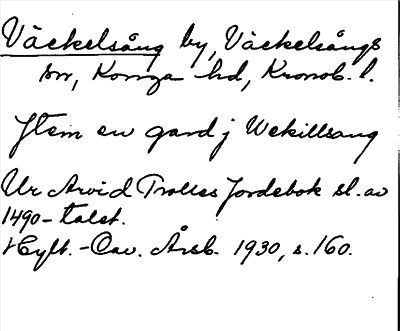 Väckelsång by, Väckelsångs
sn, Konga hd, Kronob. l.
Jtem en gard j Wekillsang
Ur Arvid Trolles Jordebok sl. av
1490-talet.
Hylt.-Cav. Årsb. 1930, s. 160.